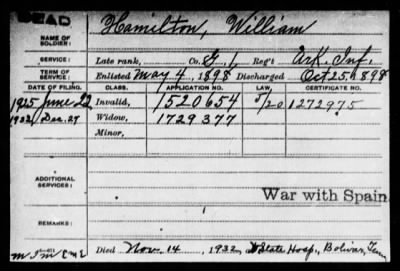 DEAD
NAME OF SOLDIER: Hamilton, William
SERVICE: Late rank, Co. G, 1 Reg't Ark. Inf.
TERM OF SERVICE: Enlisted May 4, 1898 Discharged Oct. 25, 1898
DATE OF FILING. CLASS. APPLICATION NO. LAW. CERTIFICATE NO.
1925 June 22 Invalid, 1520654 5/20 1272975
1932 Dec. 27 Widow, 1729377
Minor,
ADDITIONAL SERVICES:
War with Spain
REMARKS:
Died Nov. 14, 1932, State Hosp., Bolivar, Tenn